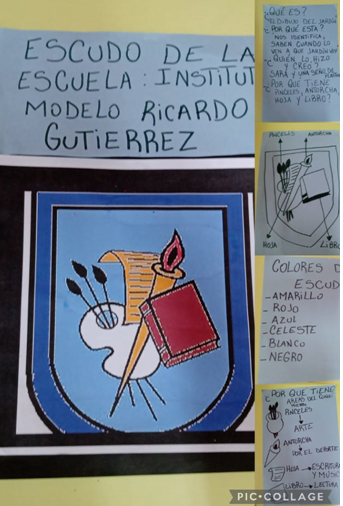 ESCUDO DE LA
ESCUELA: INSTITUT
MODELO RICARDO
GUTIERREZ
¿QUÉ ES?
EL DIBUJO DEL JARDÍN
¿POR QUÉ ESTA?
NOS IDENTIFICA,
SABEN CUANDO LO
VEN A QUE JARDÍN VAN
¿QUIÉN LO HIZO
Y CREO?
SARA Y UNA SEÑO DE
¿POR QUÉ TIENE
PINCELES, ANTORCHA,
HOJA Y LIBRO?
PINCELES
ANTORCHA
HOJA
LIBRO
COLORES D
ESCUD
- AMARILLO
- ROJO
- AZUL
- CELESTE
- BLANCO
- NEGRO
¿POR QUE TIENE
PINCELES
ARTE
ANTORCHA
POR EL DEBATE
HOJA → ESCRITURA
Y MÚSIC
LIBRO → LECTURA
PIC•COLLAGE